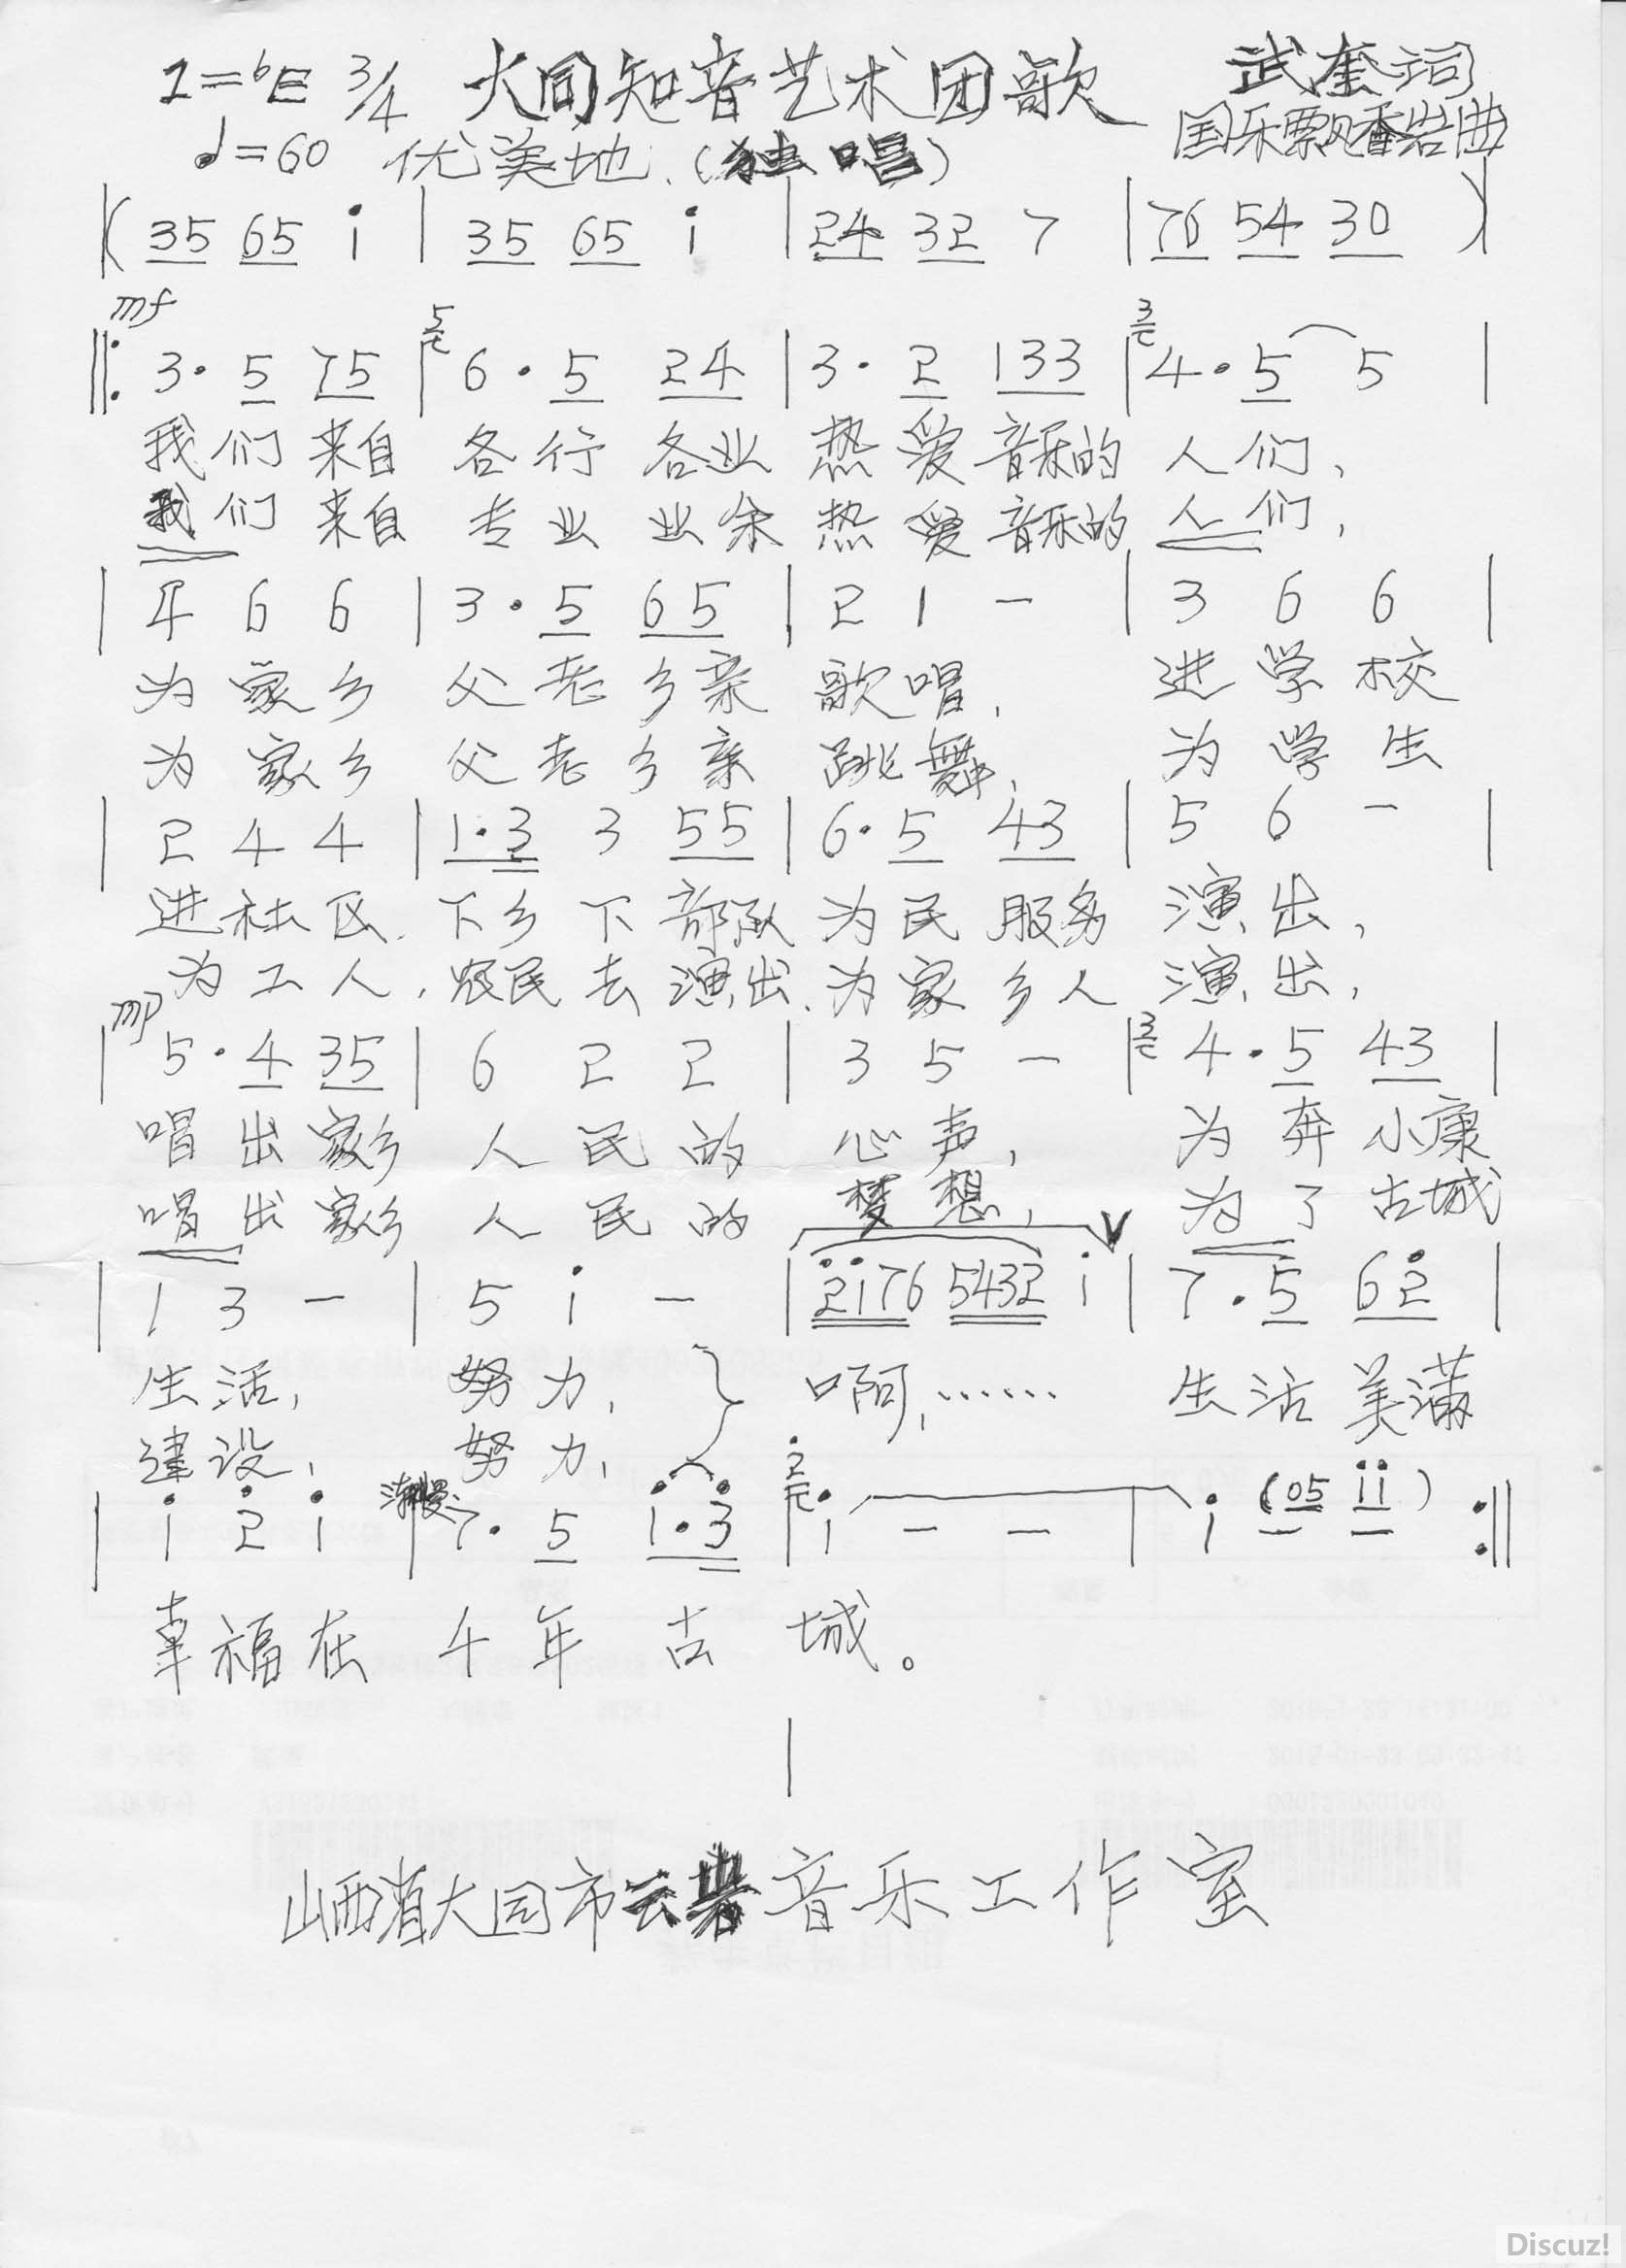 1=bE 3/4 大同知音艺术团歌 武奎词
♩=60 优美地、(独唱) 国乐飘香岩曲
|( 35 65 i | 35 65 i | 24 32 7 | 76 54 30 )|
mf
‖: 3· 5 75 | 5 6· 5 24 | 3· 2 133 | 3 4· 5 5 |
我们来自 各行各业 热爱音乐的 人们、
我们来自 专业业余 热爱音乐的 人们,
| 4 6 6 | 3· 5 65 | 2 1 - | 3 6 6 |
为家乡 父老乡亲 歌唱, 进学校
为家乡 父老乡亲 跳舞, 为学生
| 2 4 4 | 1·3 3 55 | 6· 5 43 | 5 6 - |
进社区、下乡下部队 为民服务 演出,
为工人,农民去演出、为家乡人 演出,
mp
| 5· 4 35 | 6 2 2 | 3 5 - | 3 4· 5 43 |
唱出家乡 人民的 心声, 为奔小康
唱出家乡 人民的 梦想, 为了古城
| 1 3 - | 5 i - | 2176 5432 i | 7· 5 62 |
生活, 努力, } 啊,…… 生活美满
建设, 努力,
| i 2 i | 渐慢 7· 5 1·3 | 2 i - - | i (05 11) :‖
幸福在 千年古 城。
山西省大同市云岩音乐工作室
Discuz!